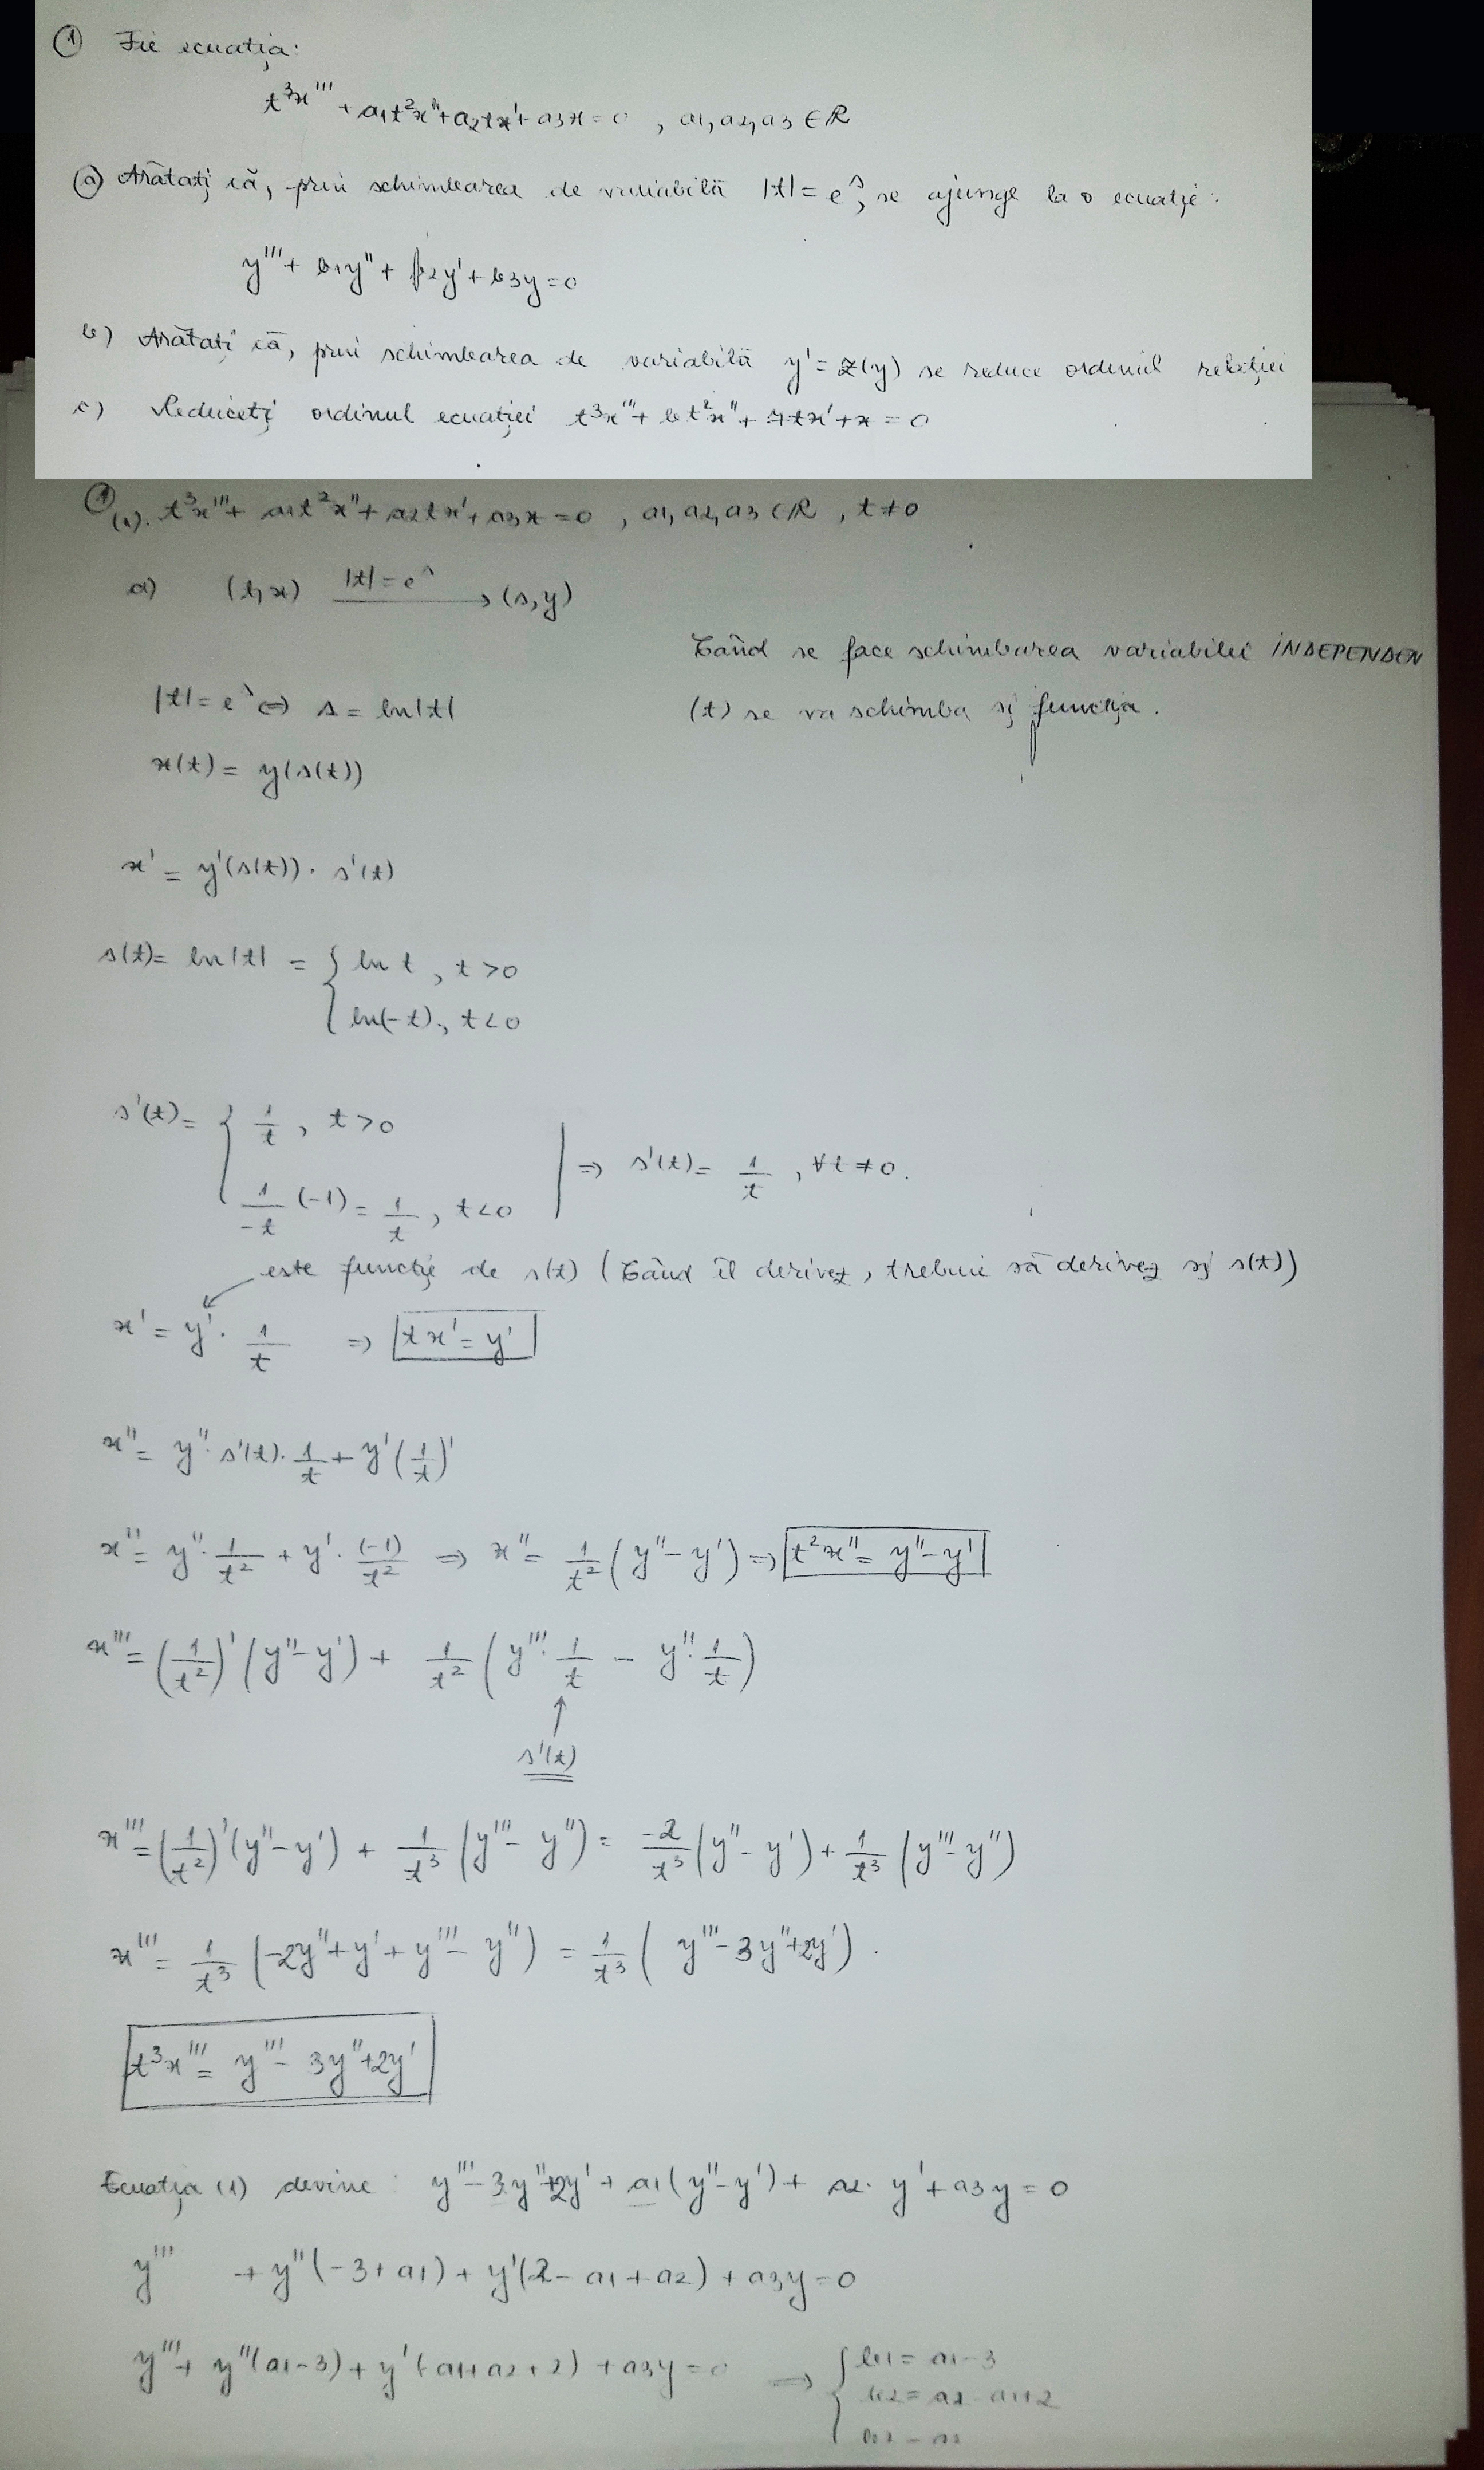 ① Fie ecuația:
t³x''' + a1t²x'' + a2tx' + a3x = 0 , a1, a2, a3 ∈ R
ⓐ Arătați că, prin schimbarea de variabilă |t| = e^s, se ajunge la o ecuație:
y''' + b1y'' + b2y' + b3y = 0
b) Arătați că, prin schimbarea de variabilă y' = z(y) se reduce ordinul relației
c) Reduceți ordinul ecuației t³x''' + 6t²x'' + 7tx' + x = 0
① (1). t³x''' + a1t²x'' + a2tx' + a3x = 0 , a1, a2, a3 ∈ R , t ≠ 0
a) (t,x) |t| = e^s → (s,y)
Când se face schimbarea variabilei INDEPENDEN
|t| = e^s ⇔ s = ln|t|
(t) se va schimba și funcția.
x(t) = y(s(t))
x' = y'(s(t)) · s'(t)
s(t) = ln|t| = { ln t , t > 0
ln(-t) , t < 0
s'(t) = { 1/t , t > 0
1/-t (-1) = 1/t , t < 0 | ⇒ s'(t) = 1/t , ∀t ≠ 0.
este funcție de s(t) (Când îl derivez, trebuie să derivez și s(t))
x' = y' · 1/t ⇒ tx' = y'
x'' = y'' · s'(t) · 1/t + y' (1/t)'
x'' = y'' · 1/t² + y' · (-1)/t² ⇒ x'' = 1/t² (y'' - y') ⇒ t²x'' = y'' - y'
x''' = (1/t²)' (y'' - y') + 1/t² (y''' · 1/t - y'' · 1/t)
↑
s'(t)
x''' = (1/t²)' (y'' - y') + 1/t³ (y''' - y'') = -2/t³ (y'' - y') + 1/t³ (y''' - y'')
x''' = 1/t³ (-2y'' + y' + y''' - y'') = 1/t³ ( y''' - 3y'' + 2y') .
t³x''' = y''' - 3y'' + 2y'
Ecuația (1) devine : y''' - 3y'' + 2y' + a1(y'' - y') + a2 · y' + a3y = 0
y''' + y''(-3 + a1) + y'(2 - a1 + a2) + a3y = 0
y''' + y''(a1 - 3) + y'(-a1 + a2 + 2) + a3y = 0 ⇒ { b1 = a1 - 3
b2 = a2 - a1 + 2